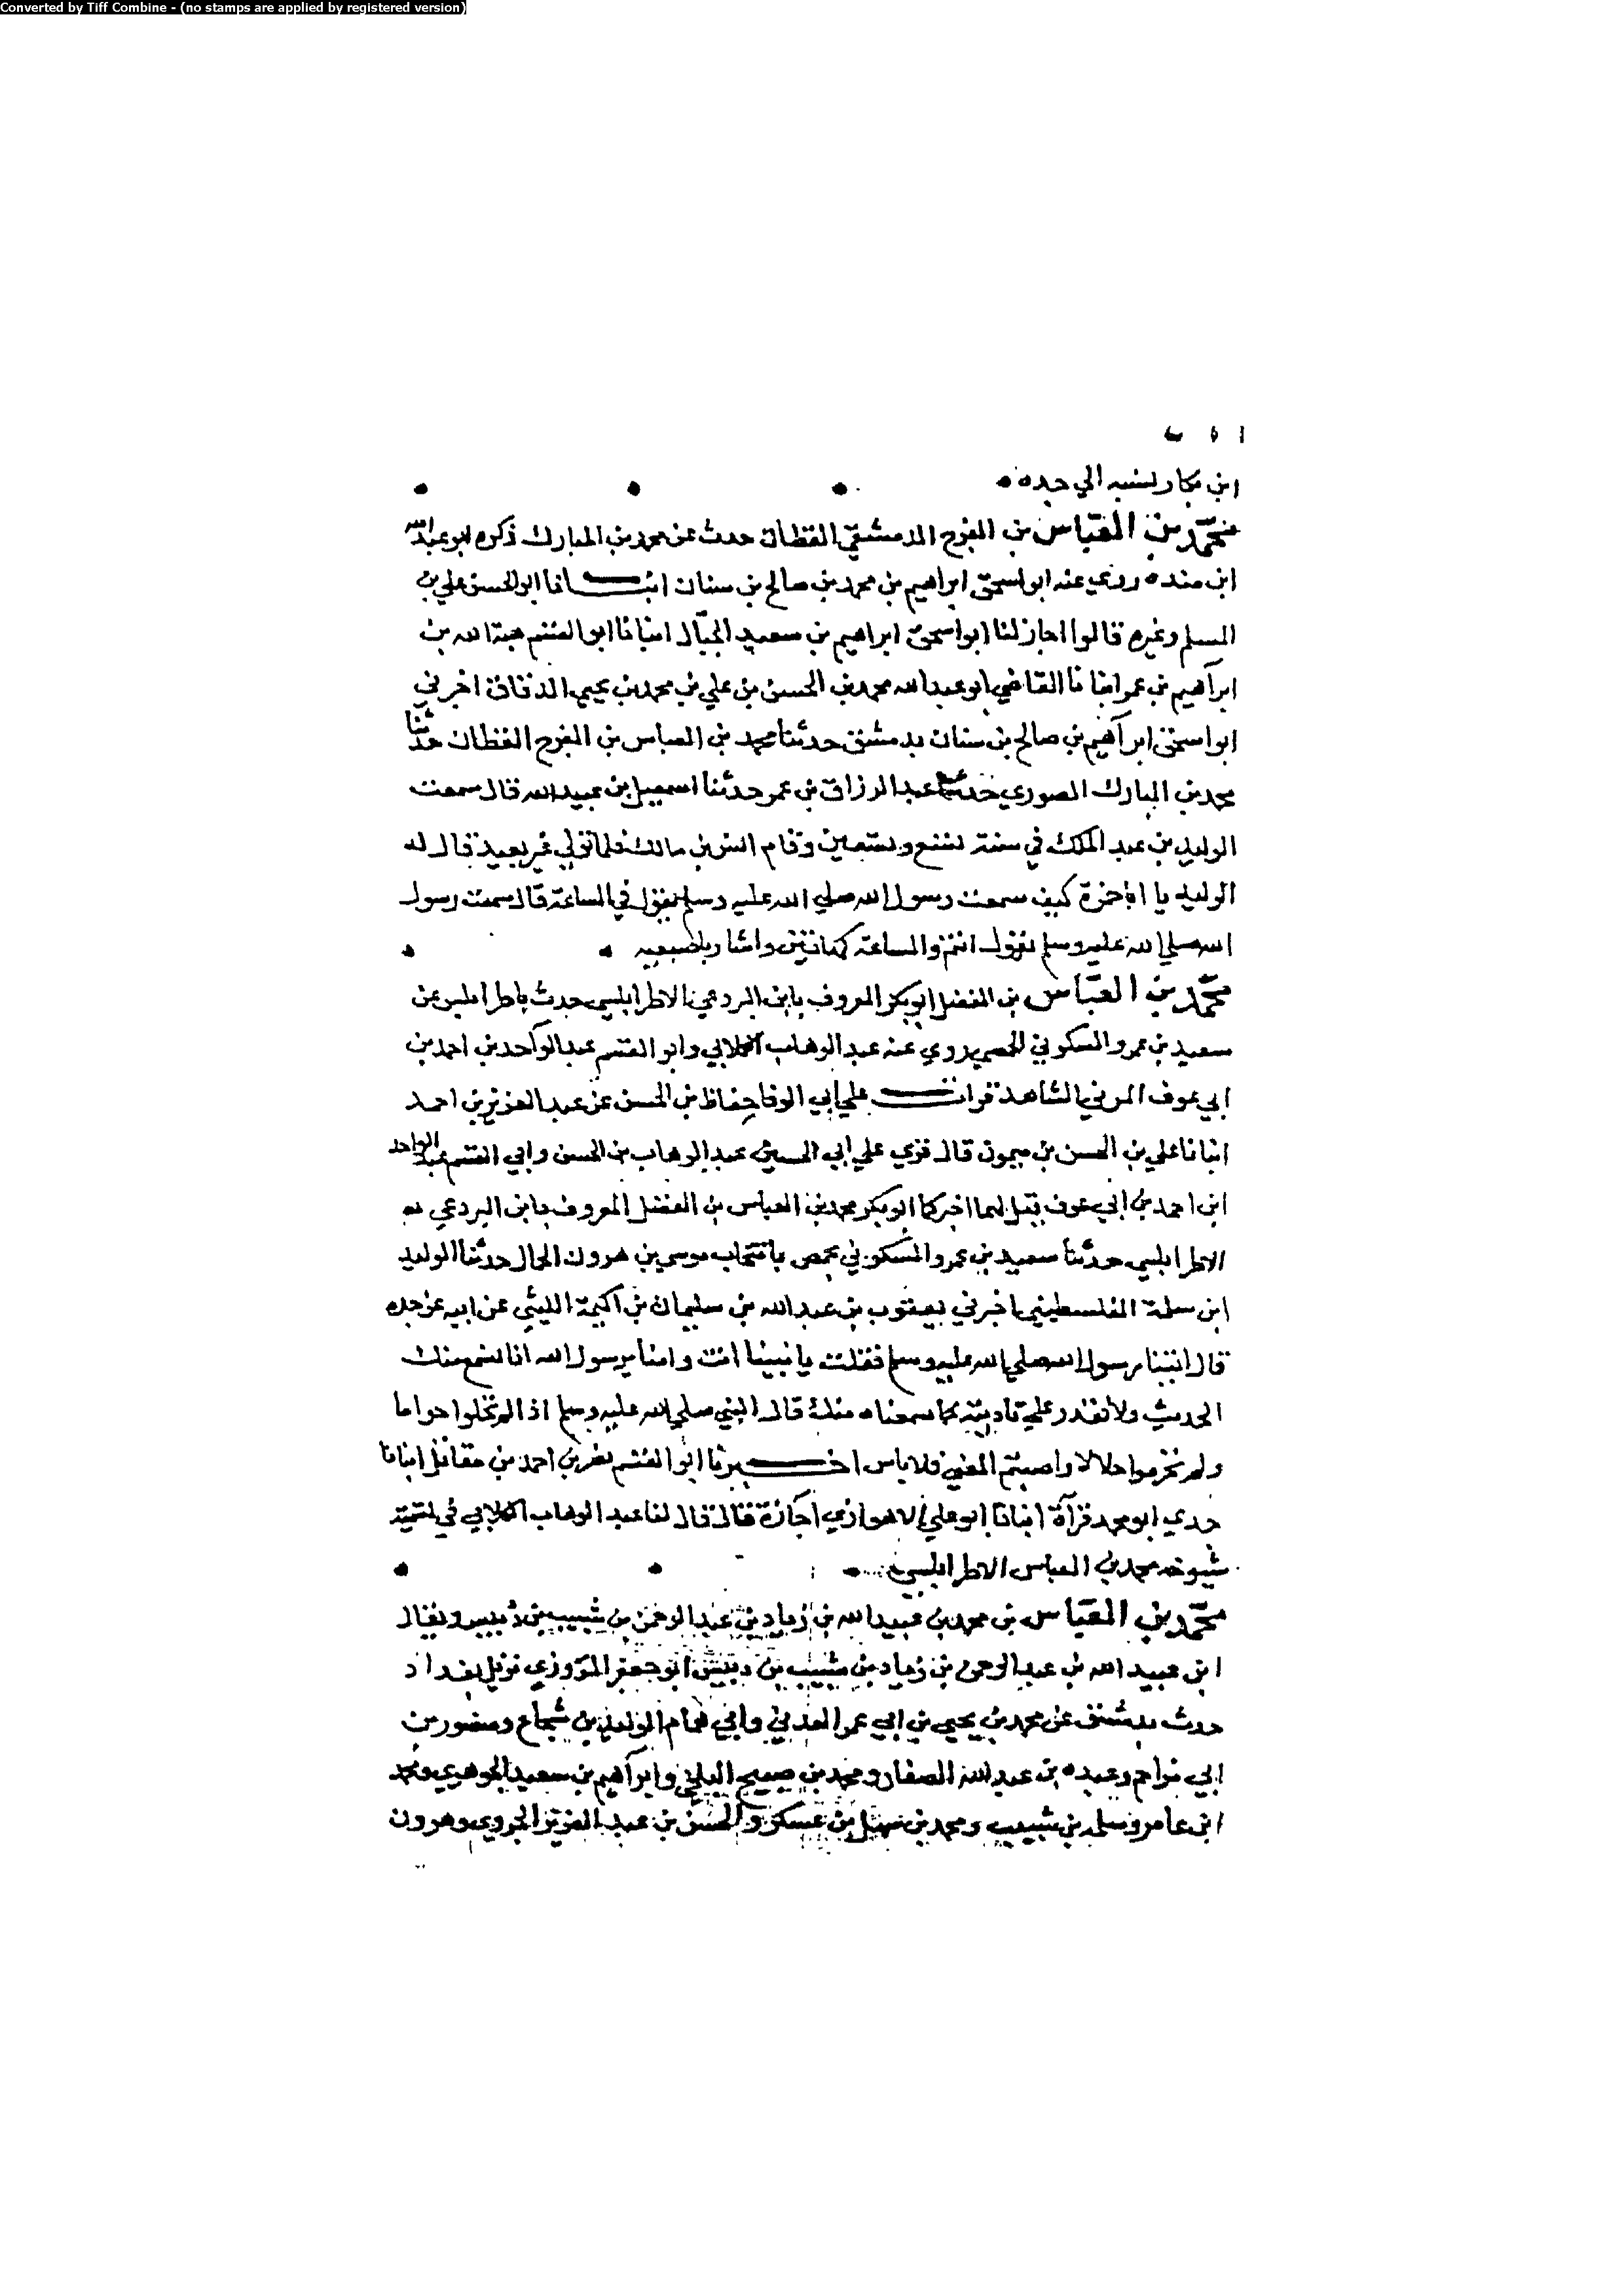 Converted by Tiff Combine - (no stamps are applied by registered version)
ابن بكار لنسبه الي جده
محمد بن العباس بن الفرج الدمشقي القطان حدث عن محمد بن المبارك ذكره ابو عبد الله
ابن منده روي عنه ابو اسحق ابراهيم بن محمد بن صالح بن سنان انبانا ابو الحسن علي بن
المسلم وغيره قالوا اجاز لنا ابو اسحق ابراهيم بن سعيد الحبال انبانا ابو القسم هبة الله بن
ابراهيم بن عمر انبانا القاضي ابو عبد الله محمد بن الحسن بن علي بن محمد بن يحيي الدقاق اخبرني
ابو اسحق ابراهيم بن صالح بن سنان بدمشق حدثنا محمد بن العباس بن الفرج القطان حدثنا
محمد بن المبارك الصوري حدثنا عبد الرزاق بن عمر حدثنا اسمعيل بن عبيد الله قال سمعت
الوليد بن عبد الملك في سنة تسع وتسعين وقام انس بن مالك فلما تولي غير بعيد قال له
الوليد يا ابا حمزة كيف سمعت رسول الله صلي الله عليه وسلم يقول في الساعة قال سمعت رسول
الله صلي الله عليه وسلم يقول انتم والساعة كهاتين واشار باصبعيه
محمد بن العباس بن الفضل ابو بكر المعروف بابن البردعي الاطرابلسي حدث باطرابلس عن
سعيد بن عمرو السكوني الحمصي روي عنه عبد الوهاب الكلابي وابو القسم عبد الواحد بن احمد بن
ابي عوف المزني الشاهد قرات علي ابي الوفا حفاظ بن الحسن عن عبد العزيز بن احمد
انبانا علي بن الحسن بن ميمون قال قري علي ابي الحسين عبد الوهاب بن الحسن وابي القسم عبد الواحد
ابن احمد بن ابي عوف بقيل لهما اخبركما ابو بكر محمد بن العباس بن الفضل المعروف بابن البردعي
الاطرابلسي حدثنا سعيد بن عمرو السكوني بحمص بانتخاب موسي بن هرون الحال حدثنا الوليد
ابن سلمة الفلسطيني اخبرني يعقوب بن عبد الله بن سليمان بن اكيمة الليثي عن ابيه عن جده
قال اتينا رسول الله صلي الله عليه وسلم فقلت يا نبينا انت وامنا يرسول الله انا لنسمع منك
الحديث ولا نقدر علي تاديته كما سمعناه منك قال النبي صلي الله عليه وسلم اذا لم تحلوا حراما
ولم تحرموا حلالا واصبتم المعني فلا باس اخبرنا ابو القسم نصر بن احمد بن مقاتل انبانا
جدي ابو محمد قرآة انبانا ابو علي الاهوازي اجازة قال قال لنا عبد الوهاب الكلابي في تسمية
شيوخه محمد بن العباس الاطرابلسي
محمد بن العباس بن محمد بن عبيد الله بن زياد بن عبد الرحمن بن شبيب بن دبيس ويقال
ابن عبيد الله بن عبد الرحمن بن زياد بن شبيب بن دبيس ابو جعفر المروزي نزيل بغداد
حدث بدمشق عن محمد بن يحيي بن ابي عمر العدني وابي همام الوليد بن شجاع ومنصور بن
ابي مزاحم وعبده بن عبد الله الصفار ومحمد بن صبيح البلخي وابراهيم بن سعيد الجوهري ومحمد
ابن عامر وسلمه بن شبيب ومحمد بن سهل بن عسكر والحسن بن عبد العزيز الجروي وهرون